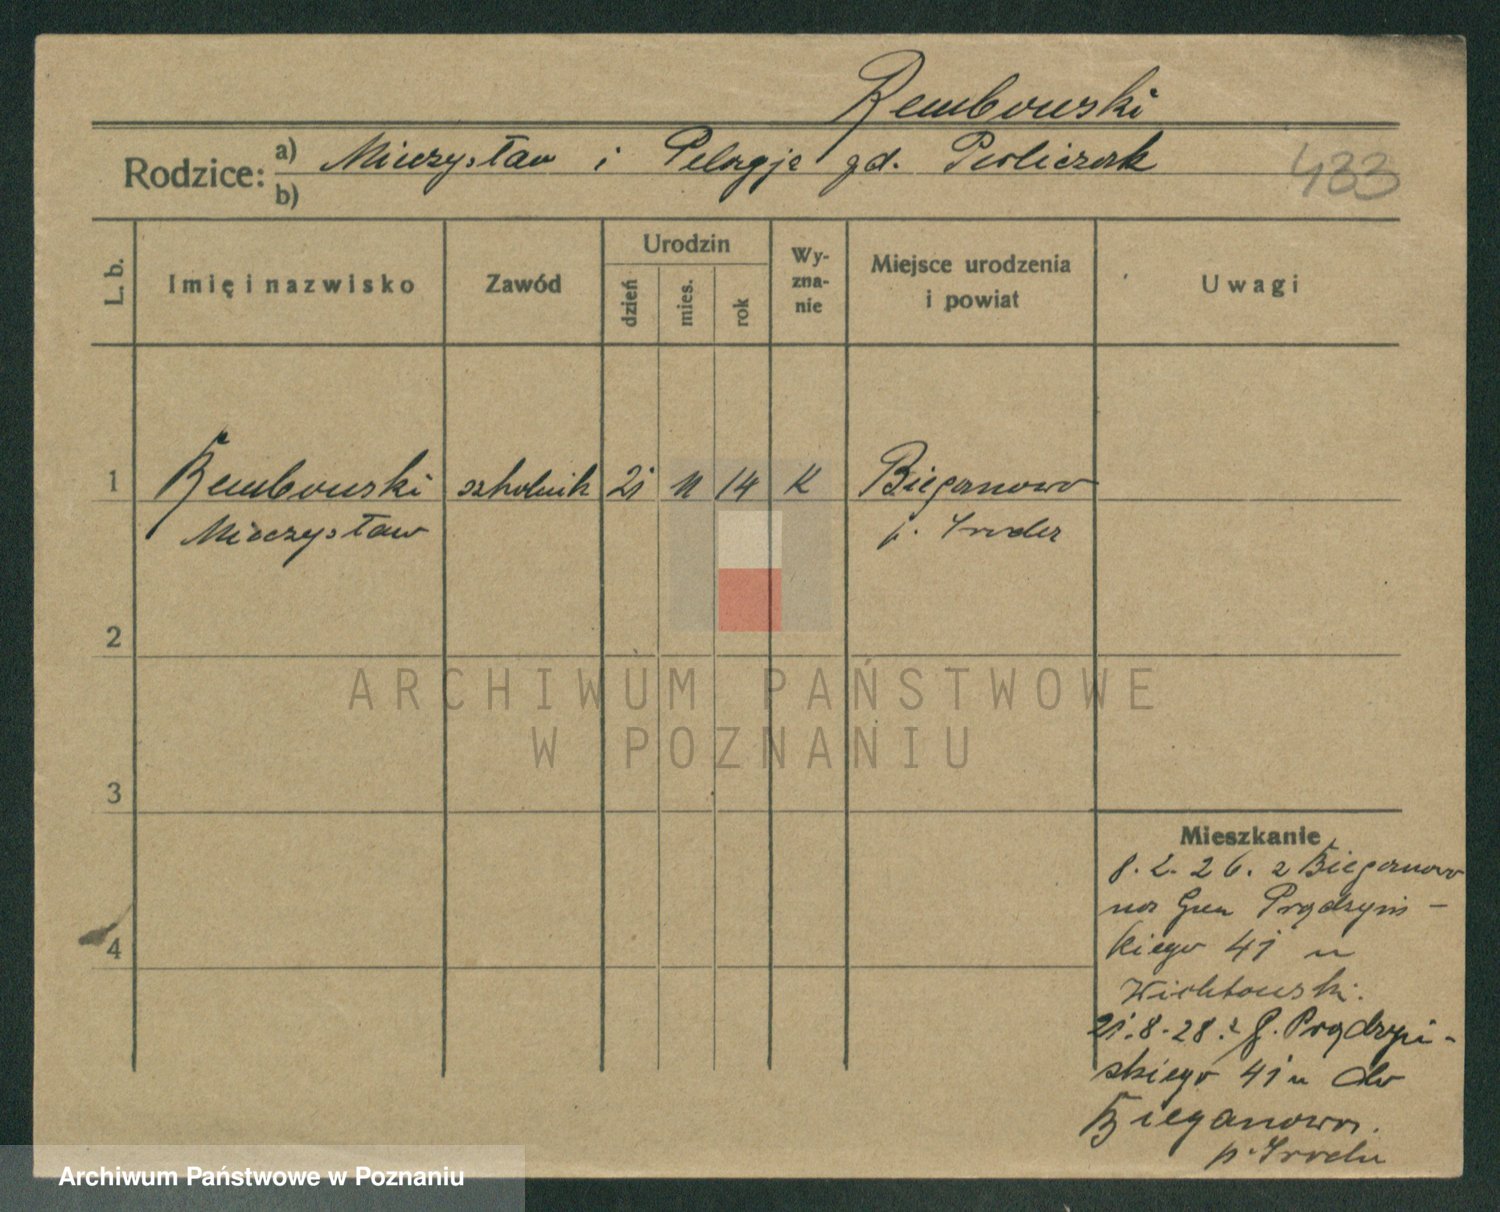 Rembowski
Rodzice: a) Mieczysław i Pelagja zd. Perliczak
b)
433
L. b.
Imię i nazwisko
Zawód
Urodzin
dzień
mies.
rok
Wy-
zna-
nie
Miejsce urodzenia
i powiat
Uwagi
1 Rembowski szkolnik 21 11 14 K Bieganowo
Mieczysław p. Środa
2
3
4
Mieszkanie
8. 2. 26. z Bieganowo
na Gen Prądzyń-
kiego 41 u
21.8.28. z G. Prądzyń-
skiego 41 u do
Bieganowo.
p. Środa
ARCHIWUM PAŃSTWOWE
W POZNANIU
Archiwum Państwowe w Poznaniu